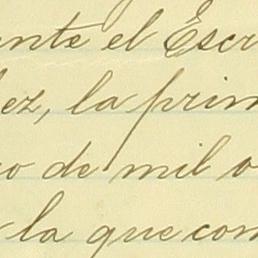 ente el Escr
ez, la prim
o de mil o
la que com